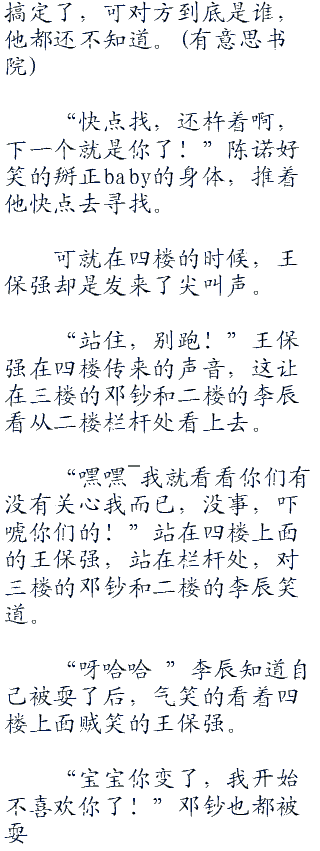 搞定了，可对方到底是谁，
他都还不知道。(有意思书
院)
“快点找，还杵着啊，
下一个就是你了！”陈诺好
笑的掰正baby的身体，推着
他快点去寻找。
可就在四楼的时候，王
保强却是发来了尖叫声。
“站住，别跑！”王保
强在四楼传来的声音，这让
在三楼的邓钞和二楼的李辰
看从二楼栏杆处看上去。
“嘿嘿ˉ我就看看你们有
没有关心我而已，没事，吓
唬你们的！”站在四楼上面
的王保强，站在栏杆处，对
三楼的邓钞和二楼的李辰笑
道。
“呀哈哈 ”李辰知道自
己被耍了后，气笑的看着四
楼上面贼笑的王保强。
“宝宝你变了，我开始
不喜欢你了！”邓钞也都被
耍